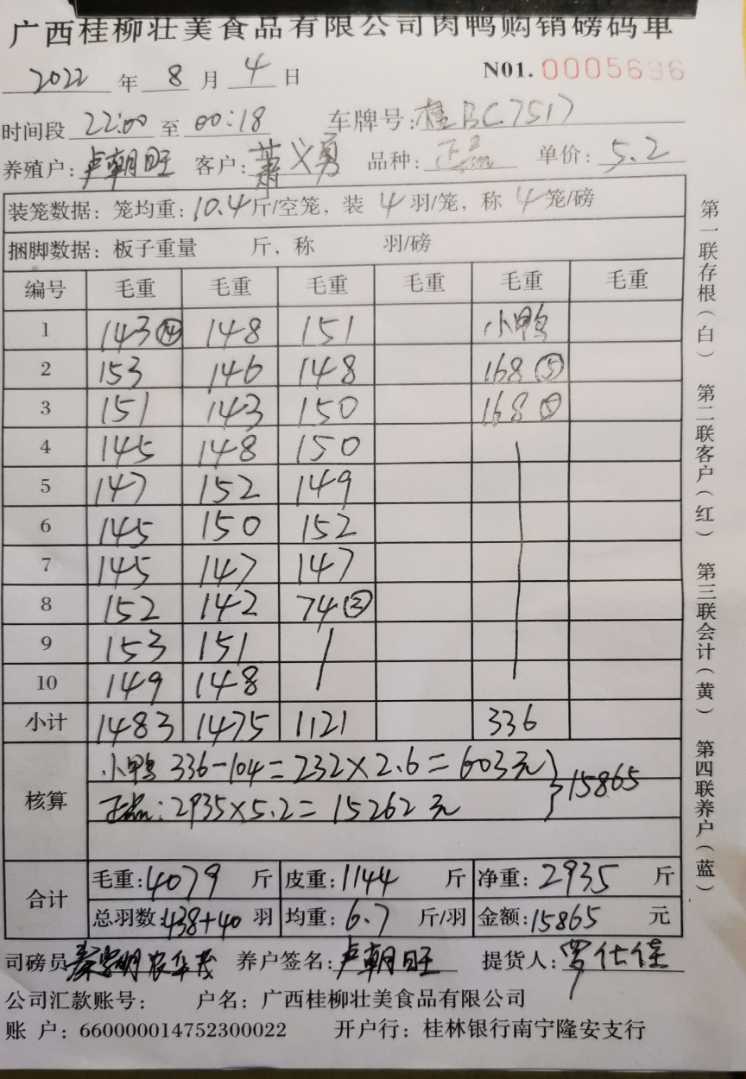 广西桂柳壮美食品有限公司肉鸭购销磅码单
2022 年 8 月 4 日 N01. 0005696
时间段 22:00 至 00:18 车牌号: 桂BC7517
养殖户: 卢朝旺 客户: 萧义勇 品种: 正品 单价: 5.2
装笼数据: 笼均重: 10.4 斤/空笼, 装 4 羽/笼, 称 4 笼/磅
捆脚数据: 板子重量 斤, 称 羽/磅
编号 毛重 毛重 毛重 毛重 毛重 毛重
1 143⑭ 148 151 小鸭
2 153 146 148 168⑤
3 151 143 150 168⑤
4 145 148 150
5 147 152 149
6 145 150 152
7 145 147 147
8 152 142 74②
9 153 151
10 149 148
小计 1483 1475 1121 336
核算 小鸭 336-104=232×2.6=603元
正品:2935×5.2=15262元 }15865
合计 毛重:4079 斤 皮重:1144 斤 净重:2935 斤
总羽数:438+40 羽 均重:6.7 斤/羽 金额:15865 元
司磅员 养户签名: 卢朝旺 提货人: 罗仕
公司汇款账号: 户名: 广西桂柳壮美食品有限公司
账 户: 660000014752300022 开户行: 桂林银行南宁隆安支行
第一联存根(白) 第二联客户(红) 第三联会计(黄) 第四联养户(蓝)